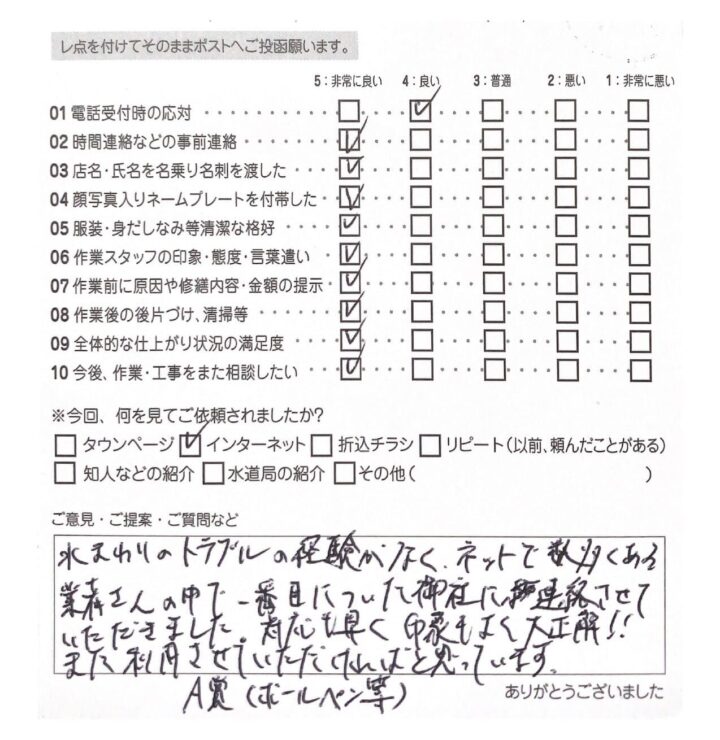 レ点を付けてそのままポストへご投函願います。
5：非常に良い 4：良い 3：普通 2：悪い 1：非常に悪い
01 電話受付時の応対
02 時間連絡などの事前連絡
03 店名・氏名を名乗り名刺を渡した
04 顔写真入りネームプレートを付帯した
05 服装・身だしなみ等清潔な格好
06 作業スタッフの印象・態度・言葉遣い
07 作業前に原因や修繕内容・金額の提示
08 作業後の後片づけ、清掃等
09 全体的な仕上がり状況の満足度
10 今後、作業・工事をまた相談したい
※今回、何を見てご依頼されましたか?
タウンページ インターネット 折込チラシ リピート(以前、頼んだことがある)
知人などの紹介 水道局の紹介 その他( )
ご意見・ご提案・ご質問など
水まわりのトラブルの経験がなく、ネットで数多くある
業者さんの中で一番目についた御社に連絡させて
いただきました。対応も早く印象もよく大正解!!
また利用させていただければと思っています。
A賞(ボールペン等)
ありがとうございました